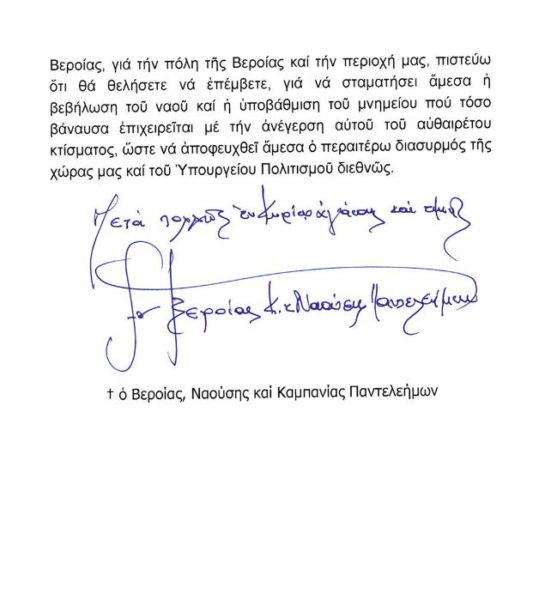 Βεροίας, γιά τήν πόλη τῆς Βεροίας καί τήν περιοχή μας, πιστεύω
ὅτι θά θελήσετε νά ἐπέμβετε, γιά νά σταματήσει ἄμεσα ἡ
βεβήλωση τοῦ ναοῦ καί ἡ ὑποβάθμιση τοῦ μνημείου πού τόσο
βάναυσα ἐπιχειρεῖται μέ τήν ἀνέγερση αὐτοῦ τοῦ αὐθαιρέτου
κτίσματος, ὥστε νά ἀποφευχθεῖ ἄμεσα ὁ περαιτέρω διασυρμός τῆς
χώρας μας καί τοῦ Ὑπουργείου Πολιτισμοῦ διεθνῶς.
Μετά πολλῆς ἐν Κυρίῳ ἀγάπης καί τιμῆς
† ὁ Βεροίας κ. Ναούσης Παντελεήμων
† ὁ Βεροίας, Ναούσης καί Καμπανίας Παντελεήμων